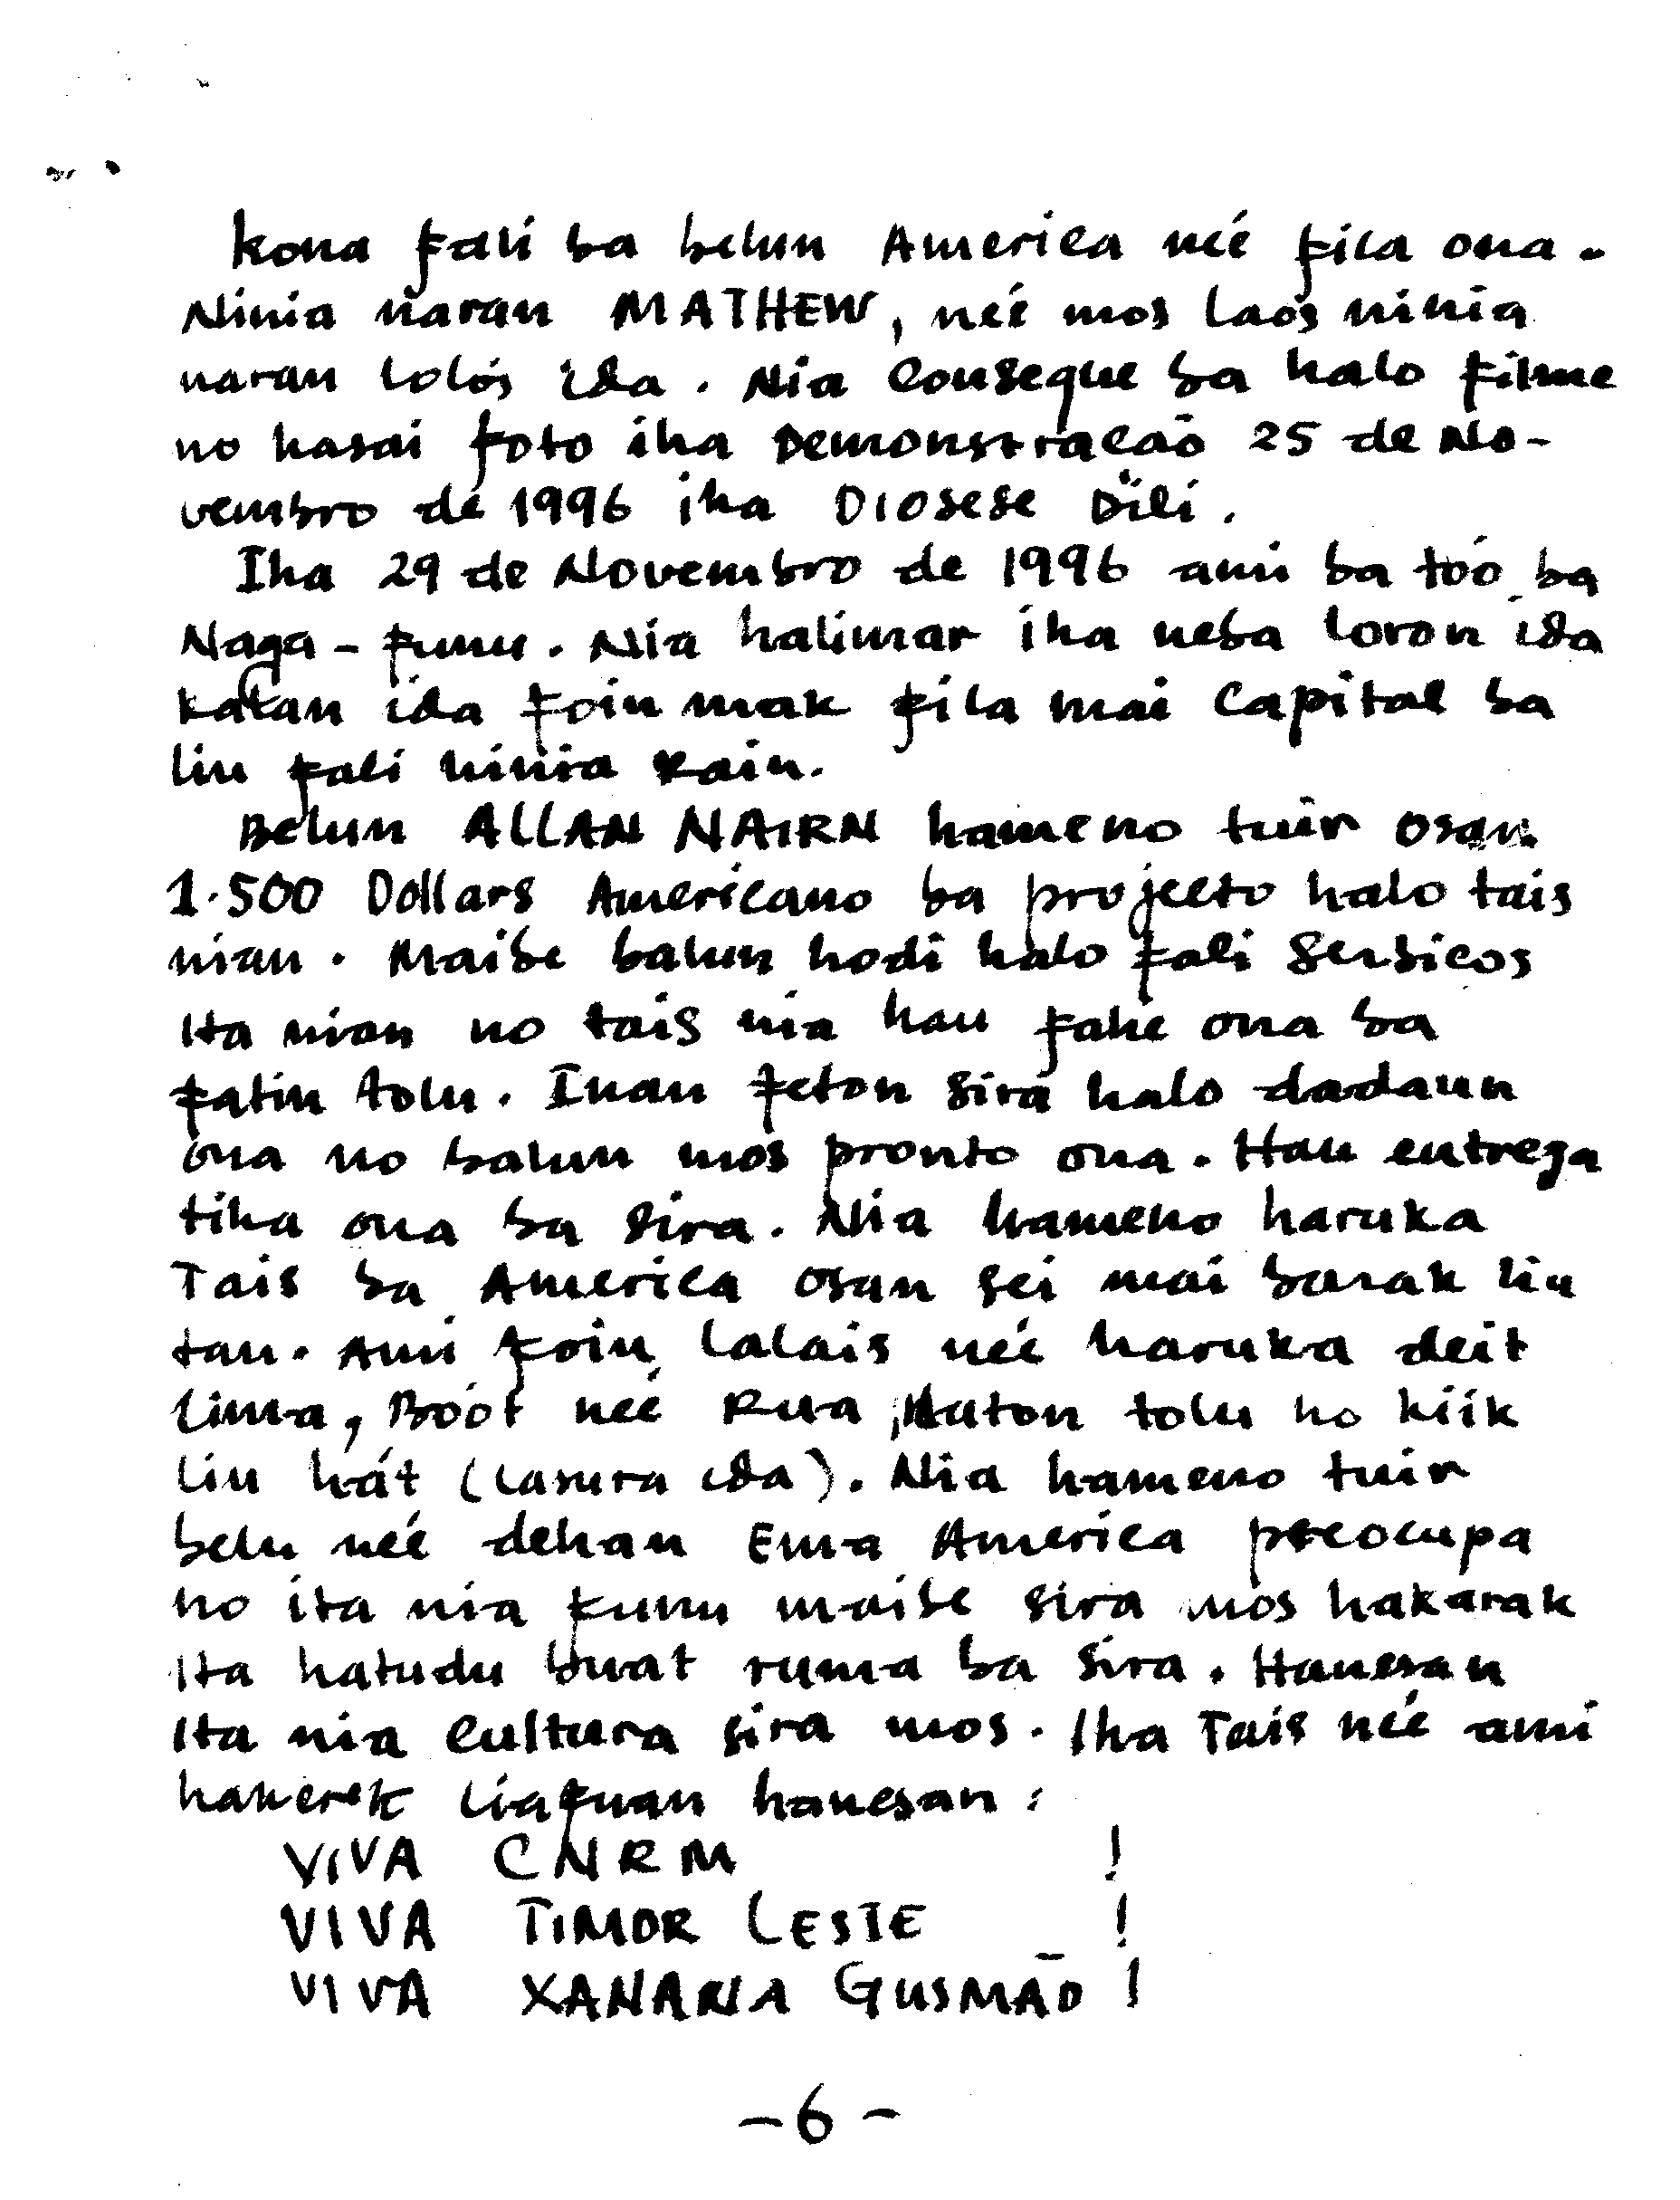 Kona fali ba belun America neé fila ona.
Ninia naran MATHEW, neé mos laós ninia
naran lolós ida. Nia conseque ba halo filme
no hasai foto iha Demonstracaõ 25 de No-
vembro de 1996 iha Diosese Dili.
Iha 29 de Novembro de 1996 ami ba toó ba
Naga-funu. Nia halimar iha neba loron ida
kalan ida foin mak fila mai Capital ba
liu fali ninia Rain.
Belun ALLAN NAIRN hameno tuir osan
1.500 Dollars Americano ba projecto halo tais
nian. Maibe balun hodi halo fali Serbicos
ita nian no tais nia hau fahe ona ba
fatin tolu. Inan feton sira halo dadaun
ona no balun mos pronto ona. Hau entrega
tiha ona ba sira. Nia hameno haruka
Tais ba America osan sei mai barak liu
tan. Ami foin lalais neé haruka deit
lima, Boót neé Rua, Naton tolu no kiik
liu hát (lasura ida). Nia hameno tuir
belu neé dehan Ema America preocupa
no ita nia funu maibe sira mós hakarak
Ita hatudu buat ruma ba sira. Hanesan
Ita nia cultura sira mos. Iha Tais neé ami
hakerek liafuan hanesan:
VIVA CNRM !
VIVA TIMOR LESTE !
VIVA XANANA GUSMÃO !
-6-